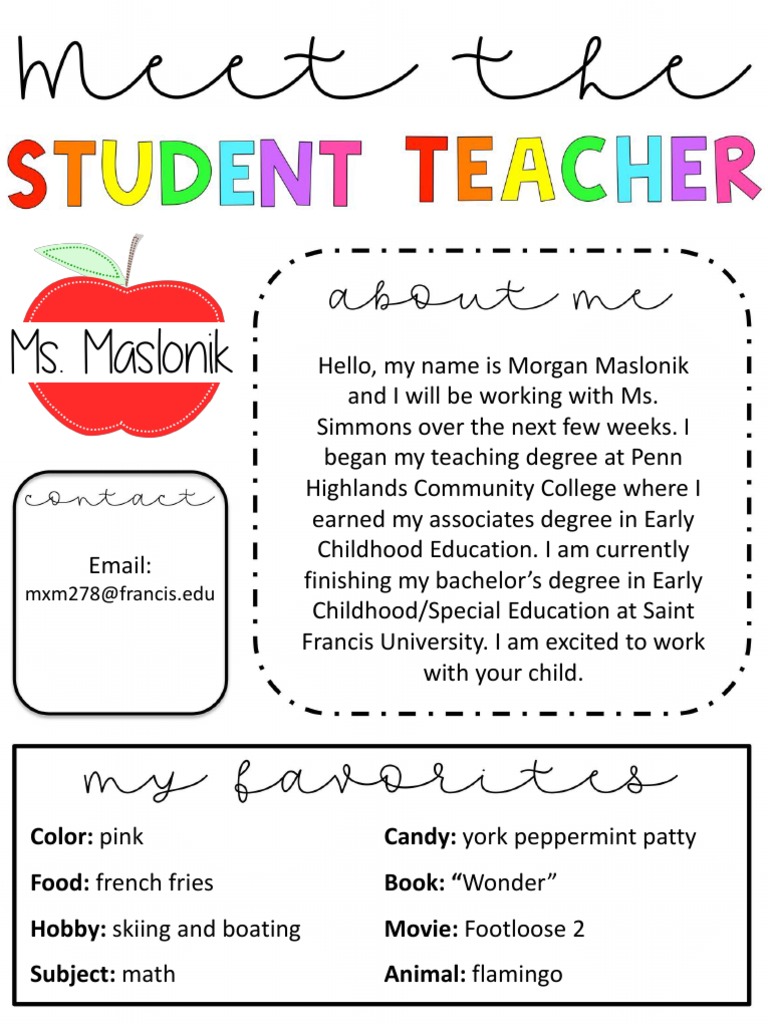 Meet the
STUDENT TEACHER
Ms. Maslonik
about me
Hello, my name is Morgan Maslonik
and I will be working with Ms.
Simmons over the next few weeks. I
began my teaching degree at Penn
Highlands Community College where I
earned my associates degree in Early
Childhood Education. I am currently
finishing my bachelor’s degree in Early
Childhood/Special Education at Saint
Francis University. I am excited to work
with your child.
contact
Email:
mxm278@francis.edu
my favorites
Color: pink
Food: french fries
Hobby: skiing and boating
Subject: math
Candy: york peppermint patty
Book: “Wonder”
Movie: Footloose 2
Animal: flamingo